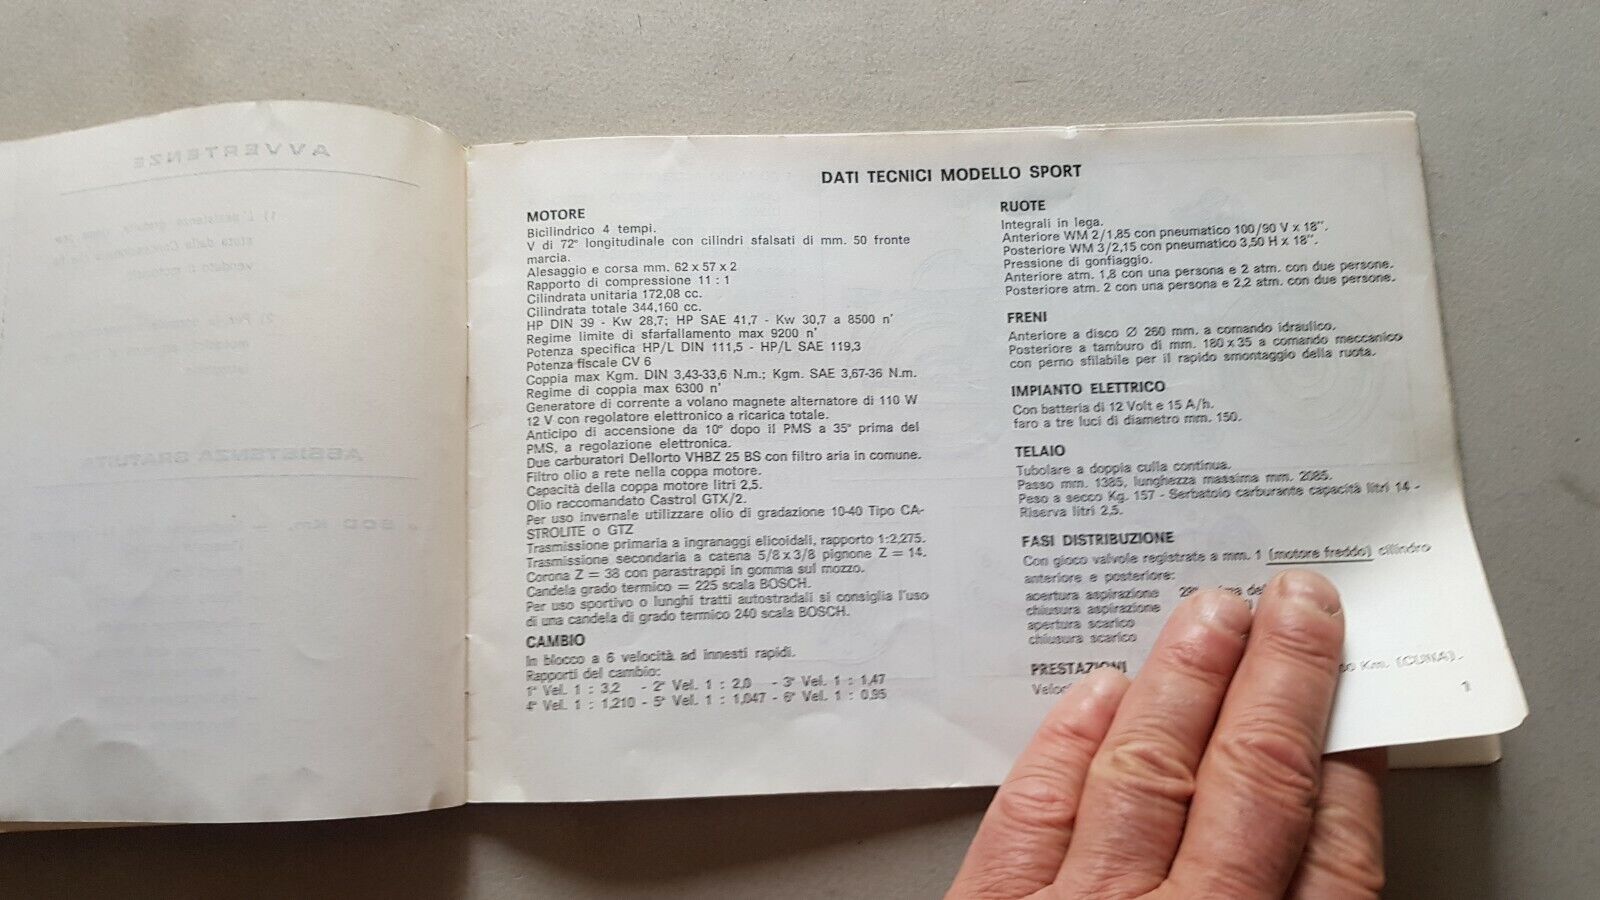 DATI TECNICI MODELLO SPORT
MOTORE
Bicilindrico 4 tempi.
V di 72° longitudinale con cilindri sfalsati di mm. 50 fronte
marcia.
Alesaggio e corsa mm. 62 x 57 x 2
Rapporto di compressione 11 : 1
Cilindrata unitaria 172,08 cc.
Cilindrata totale 344,160 cc.
HP DIN 39 - Kw 28,7; HP SAE 41,7 - Kw 30,7 a 8500 n'
Regime limite di sfarfallamento max 9200 n'
Potenza specifica HP/L DIN 111,5 - HP/L SAE 119,3
Potenza fiscale CV 6
Coppia max Kgm. DIN 3,43-33,6 N.m.; Kgm. SAE 3,67-36 N.m.
Regime di coppia max 6300 n'
Generatore di corrente a volano magnete alternatore di 110 W
12 V con regolatore elettronico a ricarica totale.
Anticipo di accensione da 10° dopo il PMS a 35° prima del
PMS, a regolazione elettronica.
Due carburatori Dellorto VHBZ 25 BS con filtro aria in comune.
Filtro olio a rete nella coppa motore.
Capacità della coppa motore litri 2,5.
Olio raccomandato Castrol GTX/2.
Per uso invernale utilizzare olio di gradazione 10-40 Tipo CA-
STROLITE o GTZ
Trasmissione primaria a ingranaggi elicoidali, rapporto 1:2,275.
Trasmissione secondaria a catena 5/8 x 3/8 pignone Z = 14.
Corona Z = 38 con parastrappi in gomma sul mozzo.
Candela grado termico = 225 scala BOSCH.
Per uso sportivo o lunghi tratti autostradali si consiglia l'uso
di una candela di grado termico 240 scala BOSCH.
CAMBIO
In blocco a 6 velocità ad innesti rapidi.
Rapporti del cambio:
1ª Vel. 1 : 3,2 - 2ª Vel. 1 : 2,0 - 3ª Vel. 1 : 1,47
4ª Vel. 1 : 1,210 - 5ª Vel. 1 : 1,047 - 6ª Vel. 1 : 0,95
RUOTE
Integrali in lega.
Anteriore WM 2/1,85 con pneumatico 100/90 V x 18".
Posteriore WM 3/2,15 con pneumatico 3,50 H x 18".
Pressione di gonfiaggio.
Anteriore atm. 1,8 con una persona e 2 atm. con due persone.
Posteriore atm. 2 con una persona e 2,2 atm. con due persone.
FRENI
Anteriore a disco Ø 260 mm. a comando idraulico.
Posteriore a tamburo di mm. 180 x 35 a comando meccanico
con perno sfilabile per il rapido smontaggio della ruota.
IMPIANTO ELETTRICO
Con batteria di 12 Volt e 15 A/h.
faro a tre luci di diametro mm. 150.
TELAIO
Tubolare a doppia culla continua.
Passo mm. 1385, lunghezza massima mm. 2085.
Peso a secco Kg. 157 - Serbatoio carburante capacità litri 14 -
Riserva litri 2,5.
FASI DISTRIBUZIONE
Con gioco valvole registrate a mm. 1 (motore freddo) cilindro
anteriore e posteriore:
apertura aspirazione
chiusura aspirazione
apertura scarico
chiusura scarico
PRESTAZIONI
Km. (CUNA).
1
AVVERTENZE
ASSISTENZA GRATUITA